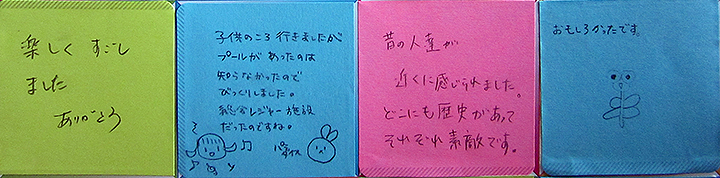 楽しく すごし
ました
ありがとう
子供のころ 行きましたが
プールが あったのは
知らなかったので
びっくりしました。
総合レジャー施設
だったのですね。
昔の人達が
近くに感じられました。
どこにも歴史があって
それぞれ素敵です。
おもしろかったです。